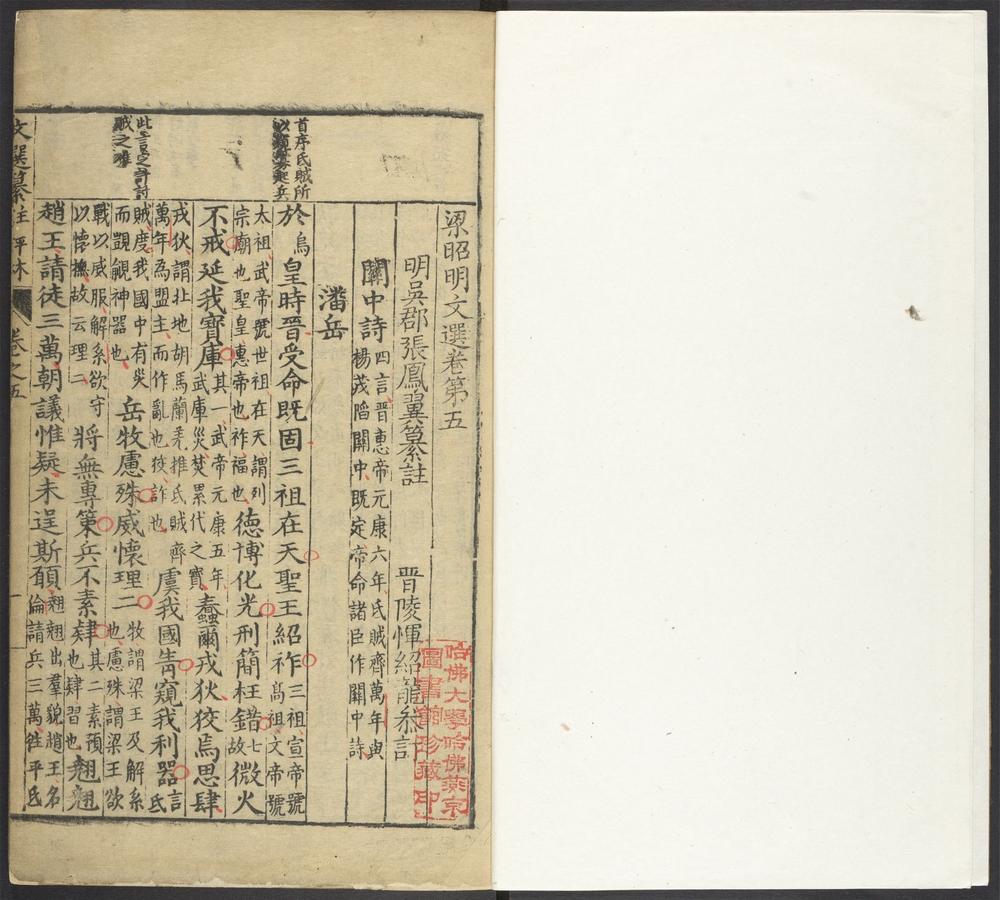 梁昭明文選卷第五
明吳郡張鳳翼纂註 晋陵惲紹龍叅言
關中詩 四言晋惠帝元康六年氐賊齊萬年與
楊茂陷關中既定帝命諸臣作關中詩
潘岳
於烏皇時晋受命既固三祖在天聖王紹祚三祖宣帝號
高祖文帝號
太祖武帝號世祖在天謂列
宗廟也聖皇惠帝也祚福也德博化光刑簡枉錯七
故微火
不戒延我寶庫其一武帝元康五年
武庫災焚累代之寶蠢爾戎狄狡焉思肆
戎狄謂北地胡馬蘭羌推氐賊齊
萬年為盟主而作亂也狡詐也虞我國眚窺我利器言
氐
賊度我國中有災
而覬覦神器也岳牧慮殊威懷理二牧謂梁王及解系
也慮殊謂梁王欲
戰以威服解系欲守
以懷撫故云理二將無專策兵不素肄其二素預
也肄習也翹翹
趙王請徒三萬朝議惟疑未逞斯願翹翹出羣貌趙王名
倫請兵三萬徃平氐
首序氐賊所
兵
此言之討
賊之難
文選纂註評林 卷之五 一
哈佛大學哈佛燕京
圖書館珍藏印